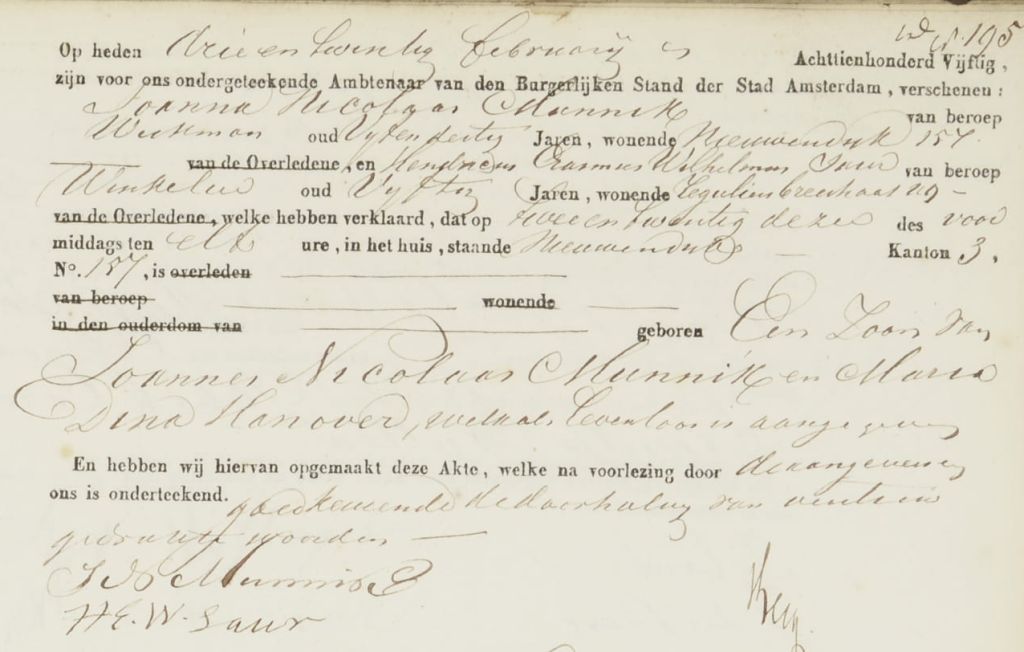 195
Op heden drie en twintig february
Achttienhonderd Vijftig,
zijn voor ons ondergeteekende Ambtenaar van den Burgerlijken Stand der Stad Amsterdam, verschenen:
Joannes Nicolaas Munnik van beroep
Werkman oud Vyf en dertig Jaren, wonende Nieuwendyk 157
van de Overledene, en Hendricus Erasmus Wilhelmus Saur van beroep
Winkelier oud Vyftig Jaren, wonende Reguliersbreestraat 29
van de Overledene, welke hebben verklaard, dat op twee en twintig dezer des voor
middags ten elf ure, in het huis, staande Nieuwendyk Kanton 3,
No. 157, is overleden
van beroep wonende
in den ouderdom van geboren Een Zoon van
Joannes Nicolaas Munnik en Maria
Dina Hanover, welk als levenloos is aangegeven
En hebben wij hiervan opgemaakt deze Akte, welke na voorlezing door de aangevers en
ons is onderteekend. goedkeurende de doorhaling van
gedrukte woorden
J N Munnik
H.E.W. Saur